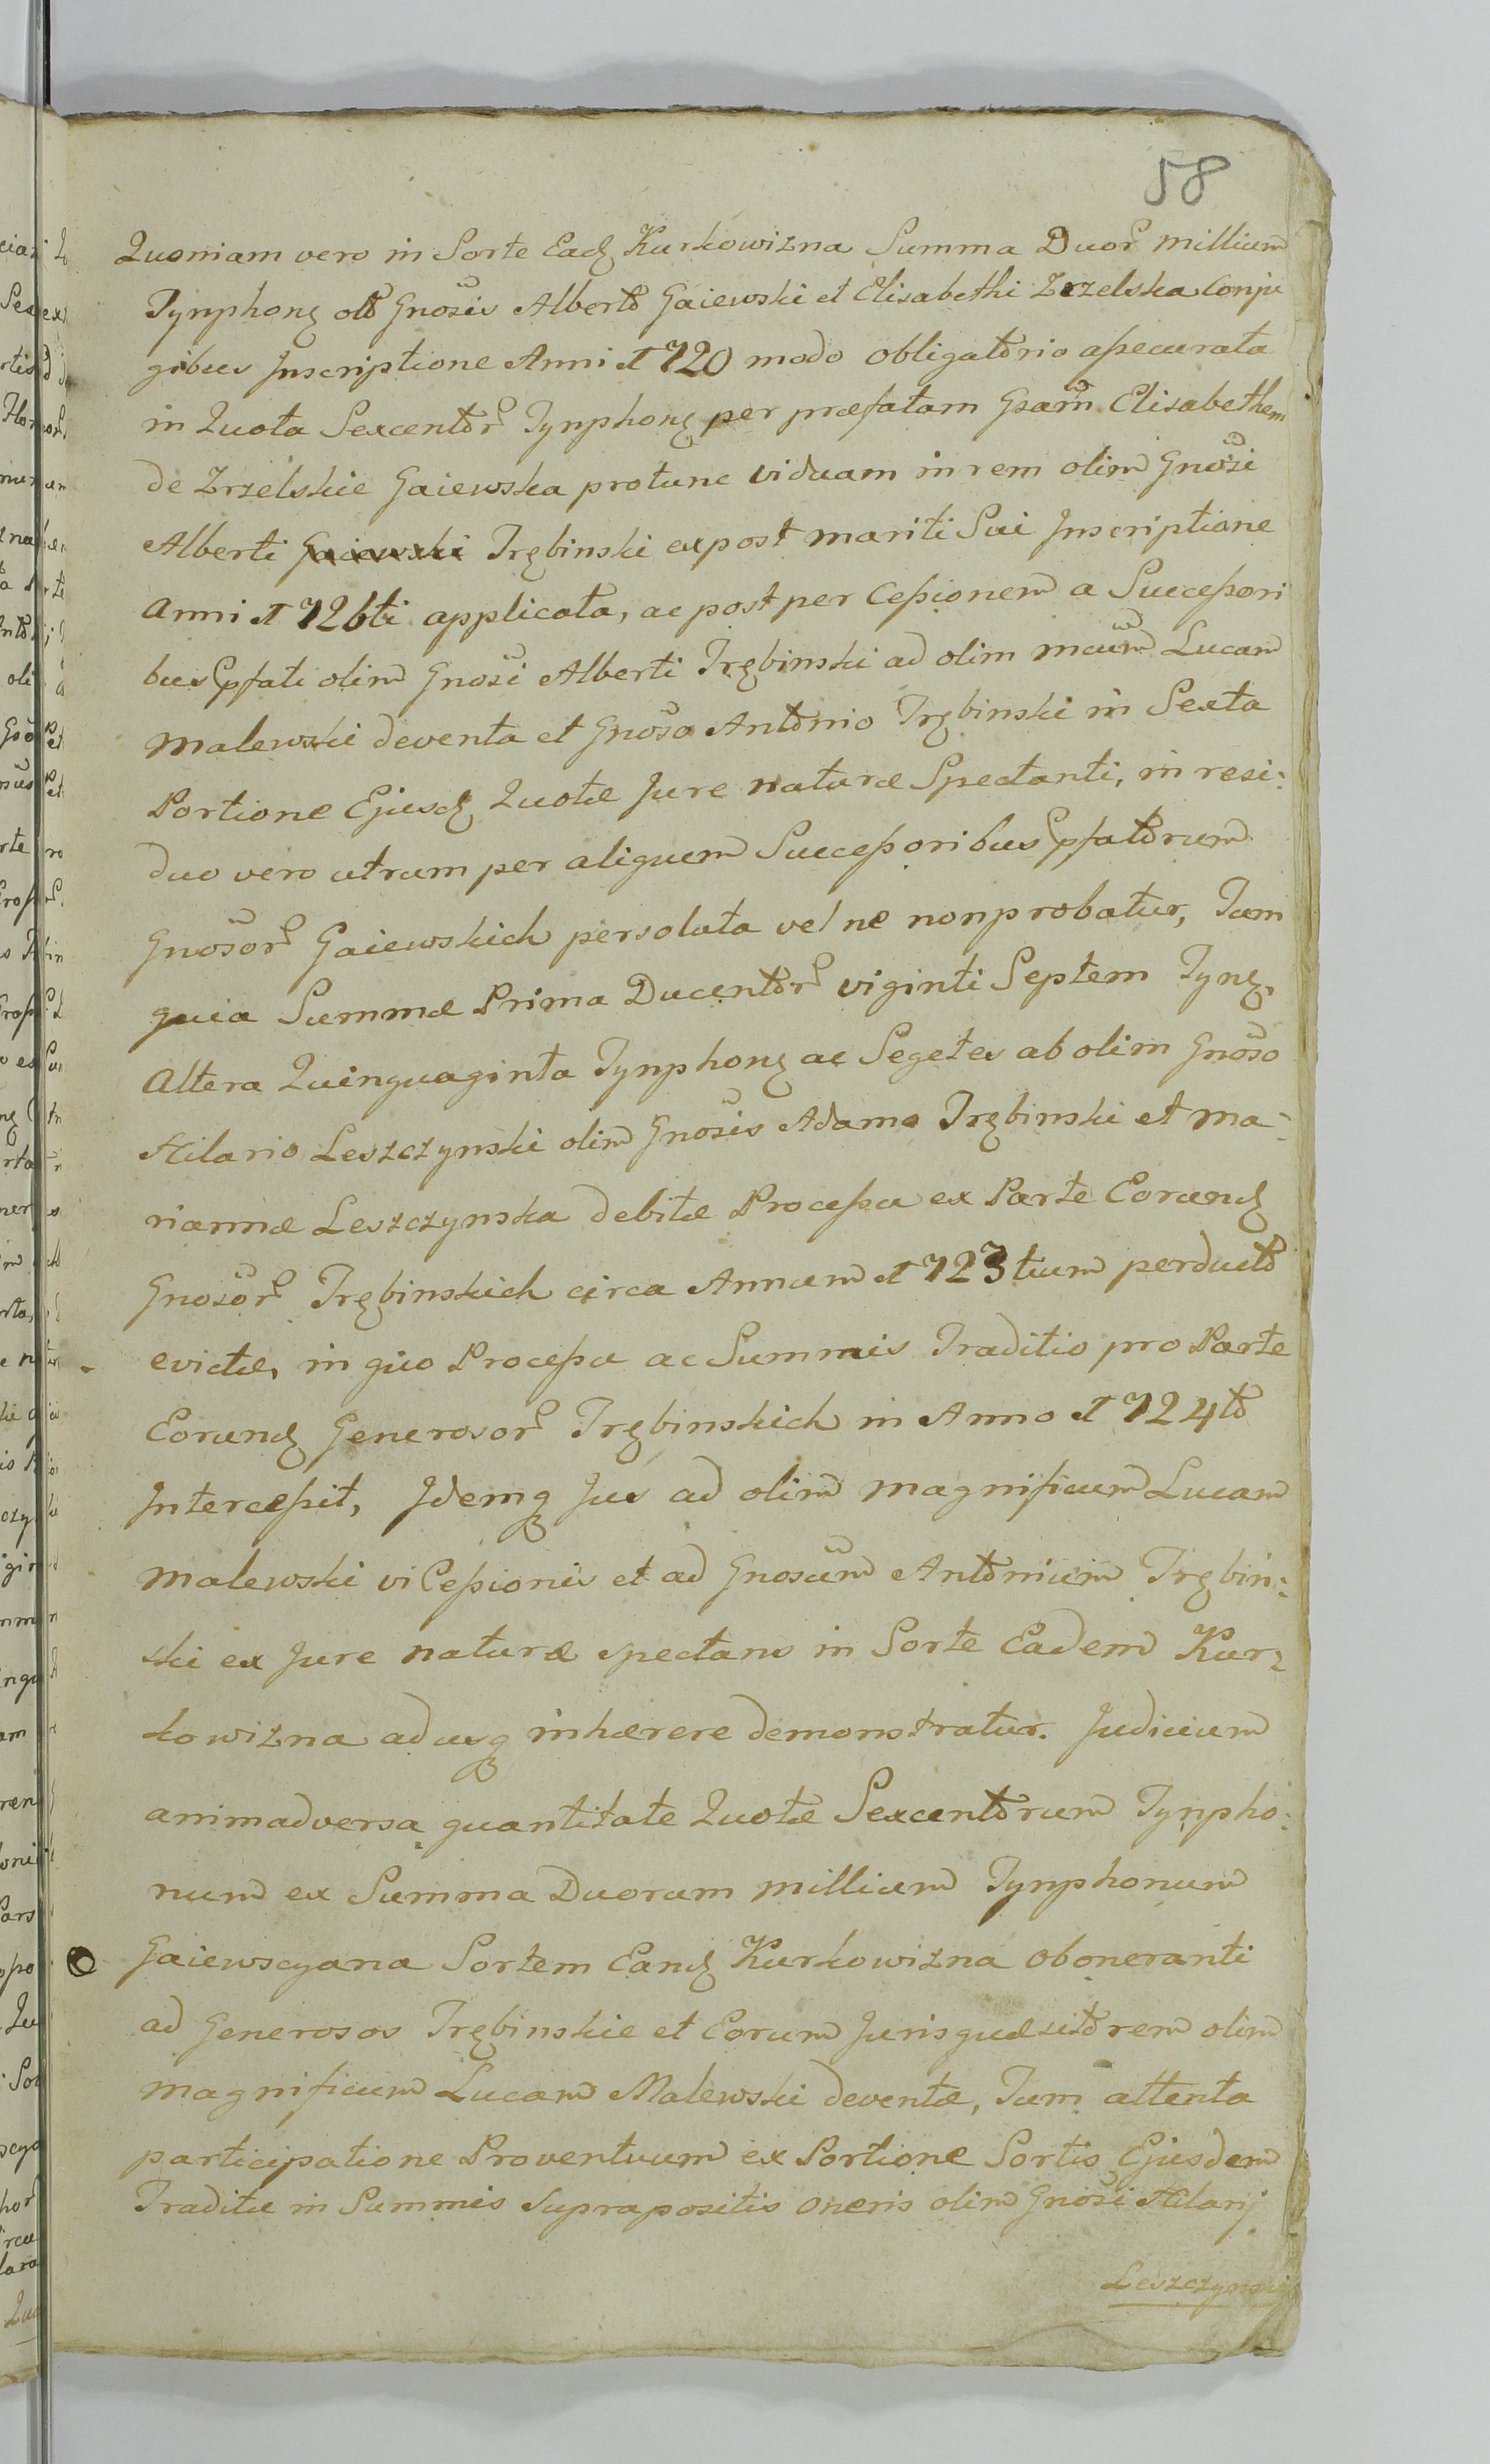 58
Quoniam vero in Sorte Eadꝫ Kurkowizna Summa Duor̃ Millium
Tynphonꝫ olĩ Gnosis Alberto Gaiewski et Elisabethi Zrzelska Conju
gibus Inscriptione Anni 1720 modo obligatorio aßecurata
in Quota Sexcentor̃ Tynphonꝫ per præfatam Gsam Elisabetham
de Zrzelskie Gaiewska protunc viduam in rem olim Gnosi
Alberti Gaiewski Trębinski expost mariti Sui Inscriptione
Anni 1726ti applicata, ac post per Ceßionem a Succeßori
bus pfati olim Gnosi Alberti Trębinski ad olim Mcum Lucam
Malewski deventa et Gnoso Antonio Trębinski in Sexta
Portione Ejusdꝫ Quotæ Jure naturæ Spectanti, in resi:
duo vero utrum per aliquem Succeßoribus pfatorum
Gnosor̃ Gaiewskich persoluta vel ne non probatur, Tum
quia Summæ Prima Ducentor̃ viginti Septem Tynꝫ,
Altera Quinquaginta Tynphonꝫ ac Segetes ab olim Gnoso
Hilario Leszczynski olim Gnosis Adamo Trębinski et Ma-
riannæ Leszczynska debitæ Proceßu ex Parte Eorundꝫ
Gnosor̃ Trębinskich circa Annum 1723tium perducto
evictæ, in quo Proceßu ac Summis Traditio pro Parte
Eorundꝫ Generosor̃ Trębinskich in Anno 1724to
Interceßit, Idemqꝫ Jus ad olim Magnificum Lucam
Malewski vi Ceßionis et ad Gnosum Antonium Trębin:
ski ex Jure naturæ spectans in Sorte Eadem Kur:
kowizna adusqꝫ inhærere demonstratur. Judicium
animadversa quantitate Quotæ Sexcentorum Tynpho:
num ex Summa Duorum Millium Tynphonum
Gaiewscyana Sortem Eandꝫ Kurkowizna oboneranti
ad Generosos Trębinskie et Eorum Jurisquæsitorem olim
Magnificum Lucam Malewski deventæ, Tum attenta
participatione Proventuum ex Portione Sortis Ejusdem
Traditæ in Summis suprapositis oneris olim Gnosi Hilarij
Leszczynskij